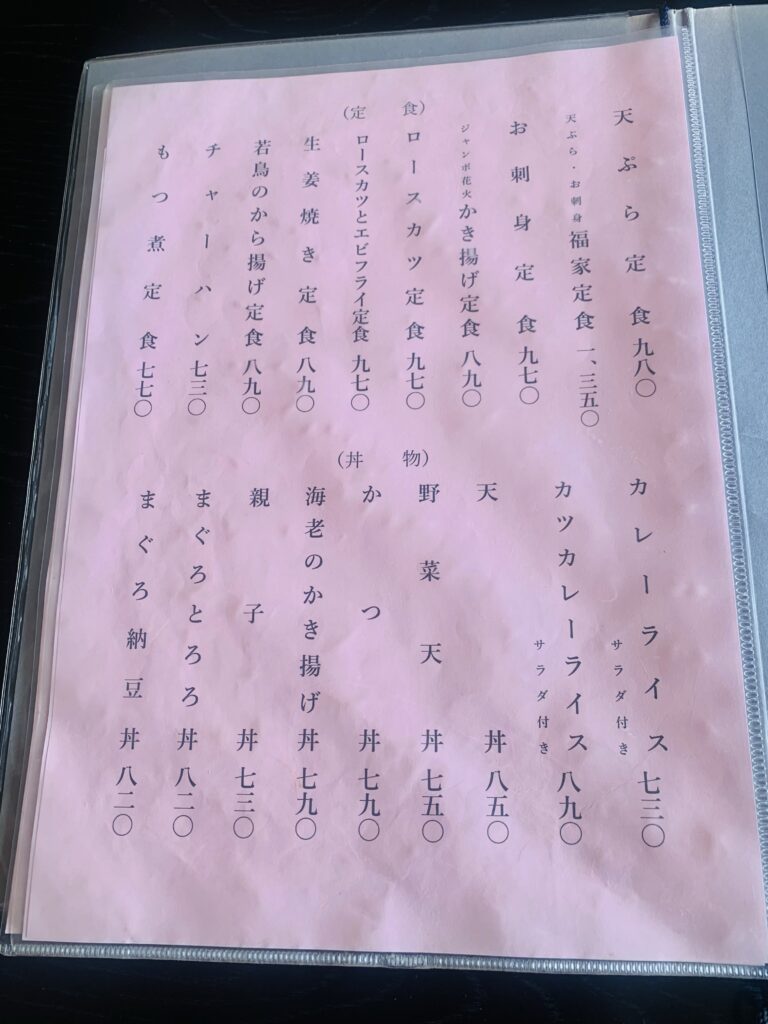 (定食)
天ぷら定食 九八〇
天ぷら・お刺身 福家定食 一、三五〇
お刺身定食 九七〇
ジャンボ花火 かき揚げ定食 八九〇
ロースカツ定食 九七〇
ロースカツとエビフライ定食 九七〇
生姜焼き定食 八九〇
若鳥のから揚げ定食 八九〇
チャーハン 七三〇
もつ煮定食 七七〇
(丼物)
カレーライス 七三〇
サラダ付き
カツカレーライス 八九〇
サラダ付き
天丼 八五〇
野菜天丼 七五〇
かつ丼 七九〇
海老のかき揚げ丼 七九〇
親子丼 七三〇
まぐろとろろ丼 八二〇
まぐろ納豆丼 八二〇